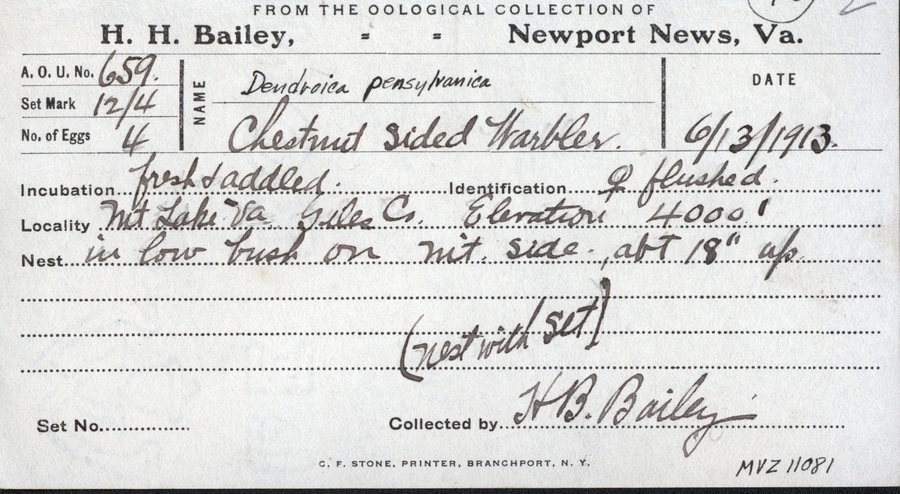 FROM THE OOLOGICAL COLLECTION OF
H. H. Bailey, = = Newport News, Va.
A. O. U. No. 659.
Set Mark 12/4
No. of Eggs 4
NAME
Dendroica pensylvanica
Chestnut Sided Warbler.
DATE
6/13/1913.
Incubation fresh & addled. Identification ♀ flushed.
Locality Mt Lake Va. Giles Co. Elevation 4000'
Nest in low bush on mt. side., abt 18" up.
(nest with set)
Set No.
Collected by H B. Bailey
C. F. STONE, PRINTER, BRANCHPORT, N. Y.
MVZ 11081